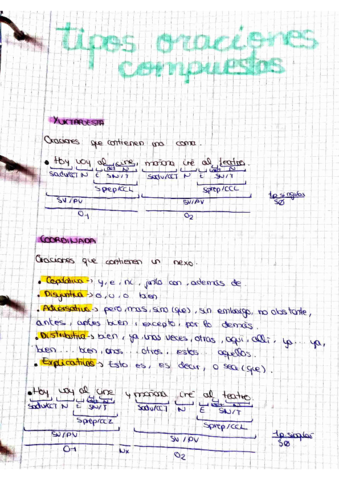 tipos oraciones
compuestas
YUXTAPUESTA
Oraciones que contienen una coma.
• Hoy voy al cine, mañana iré al teatro.
Det N Det N
SAdv/CCT N E SN/T SAdv/CCT N E SN/T
Sprep/CCL Sprep/CCL
SV/PV SV/PV 1ªp singular
O1 O2 SO
COORDINADA
Oraciones que contienen un nexo.
• Copulativa → y, e, ni, junto con, además de
• Disyuntiva → o, u, o bien
• Adversativa → pero, mas, sino (que), sin embargo, no obstante,
antes, antes bien, excepto, por lo demás.
• Distributiva → bien, ya, unas veces, otras, aquí, allí, ya... ya,
bien... bien, unos... otros, estos aquellos.
• Explicativas → Esto es, es decir, o sea (que).
• Hoy voy al cine y mañana iré al teatro.
SAdv/CCT N E SN/T SAdv/CCT N E SN/T
Sprep/CCL Sprep/CCL
SV/PV SV/PV 1ªp singular
O1 Nx O2 SO